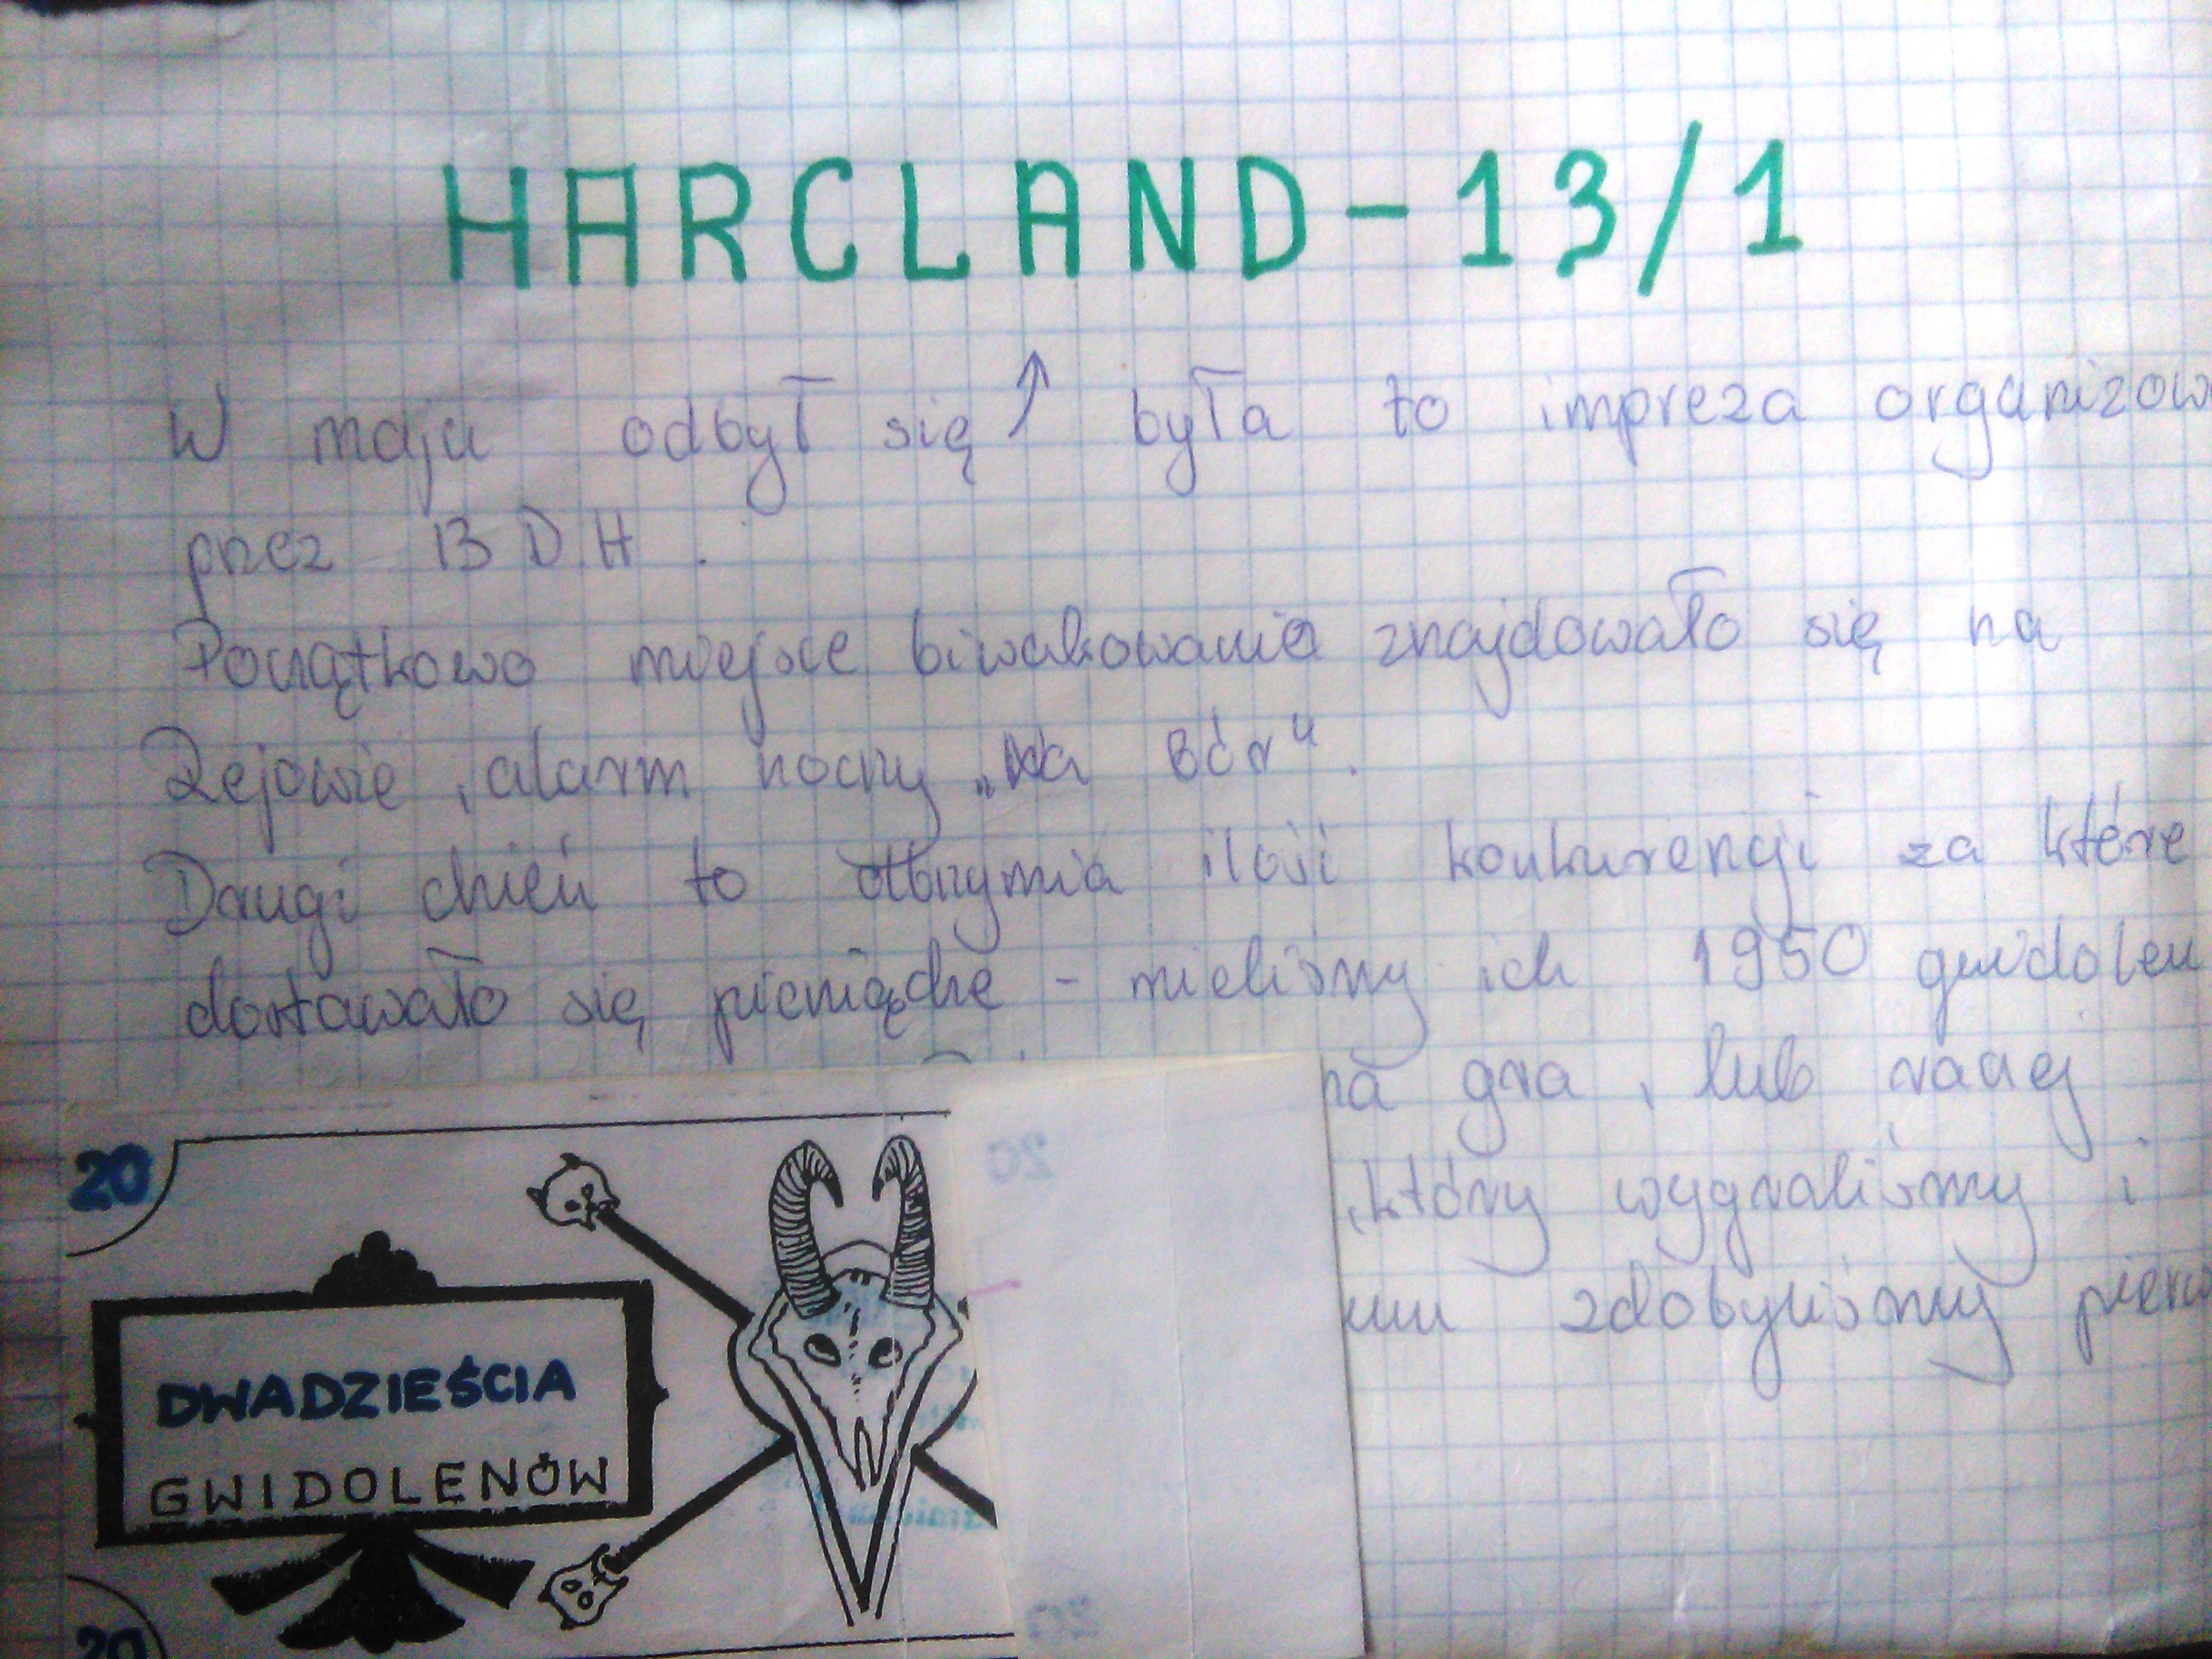 HARCLAND-13/1
W maju odbył się ↑ była to impreza organizow
przez 13 D.H.
Początkowo miejsce biwakowania znajdowało się na
Rejowie, alarm nocny „Na Bór".
Drugi dzień to olbrzymia ilość konkurencji za które
dostawało się pieniądze - mieliśmy ich 1950 gwidolen
na gra, lub raczej
20
, który wygraliśmy i
zdobyliśmy pierw
DWADZIEŚCIA
GWIDOLENÓW
20